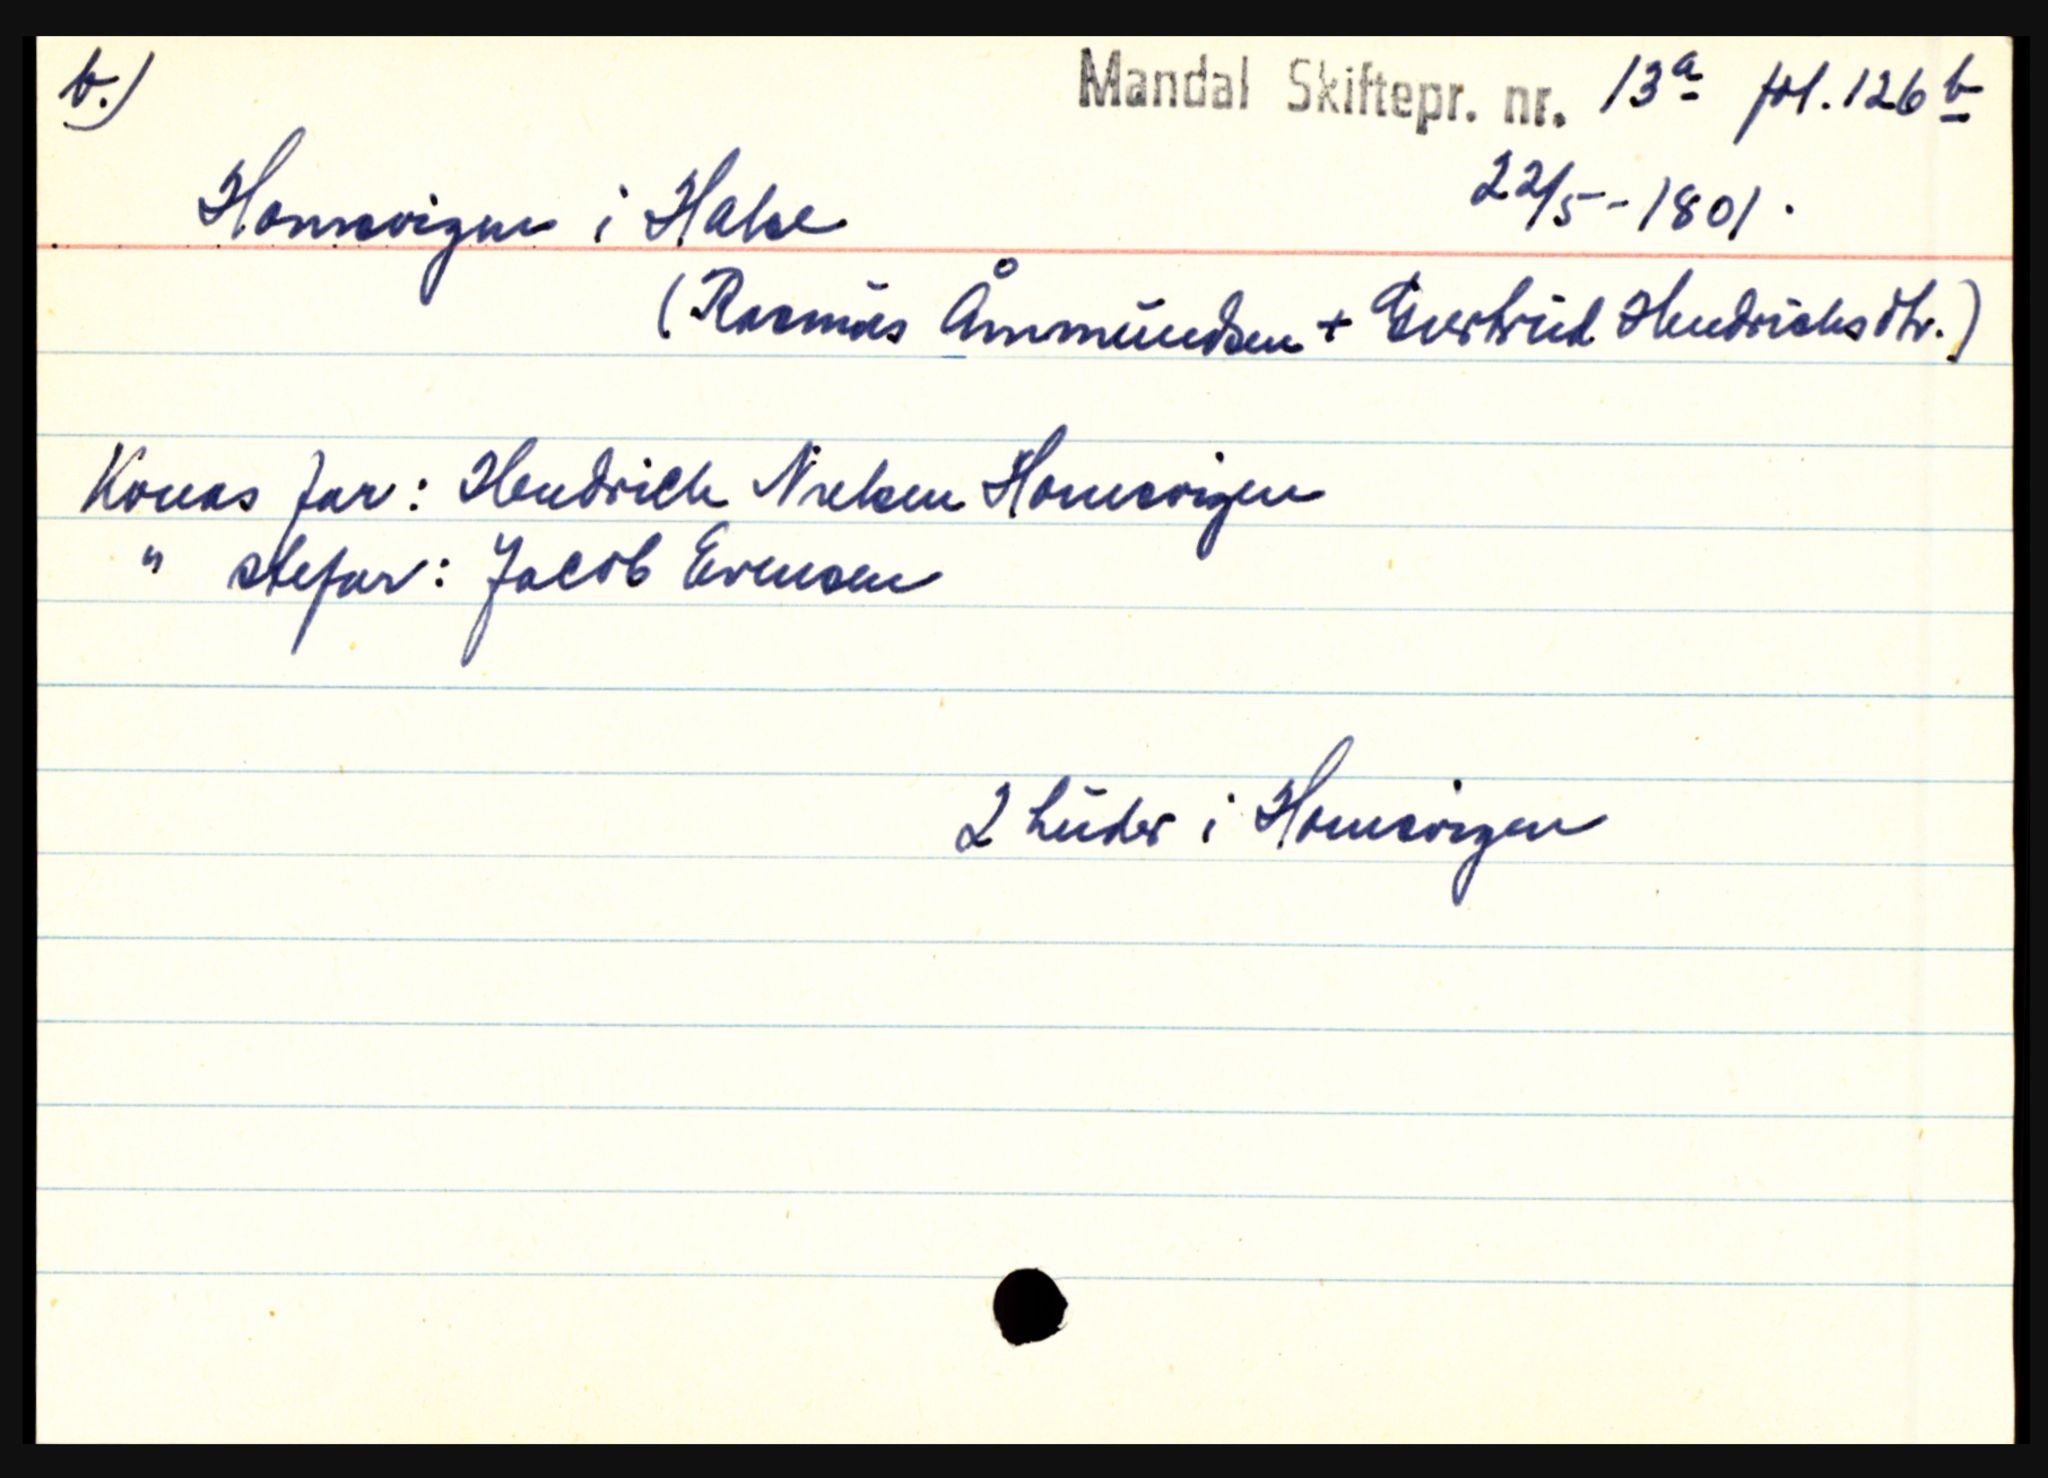 b.) Mandal Skiftepr. nr. 13a fol. 126b
Homsvigen i Halse 22/5-1801.
(Rasmus Åmmundsen + Giertrud Hendrichsdtr.)
Konas far: Hendrich Nielsen Homsvigen
" stefar: Jacob Evensen
2 huder i Homsvigen